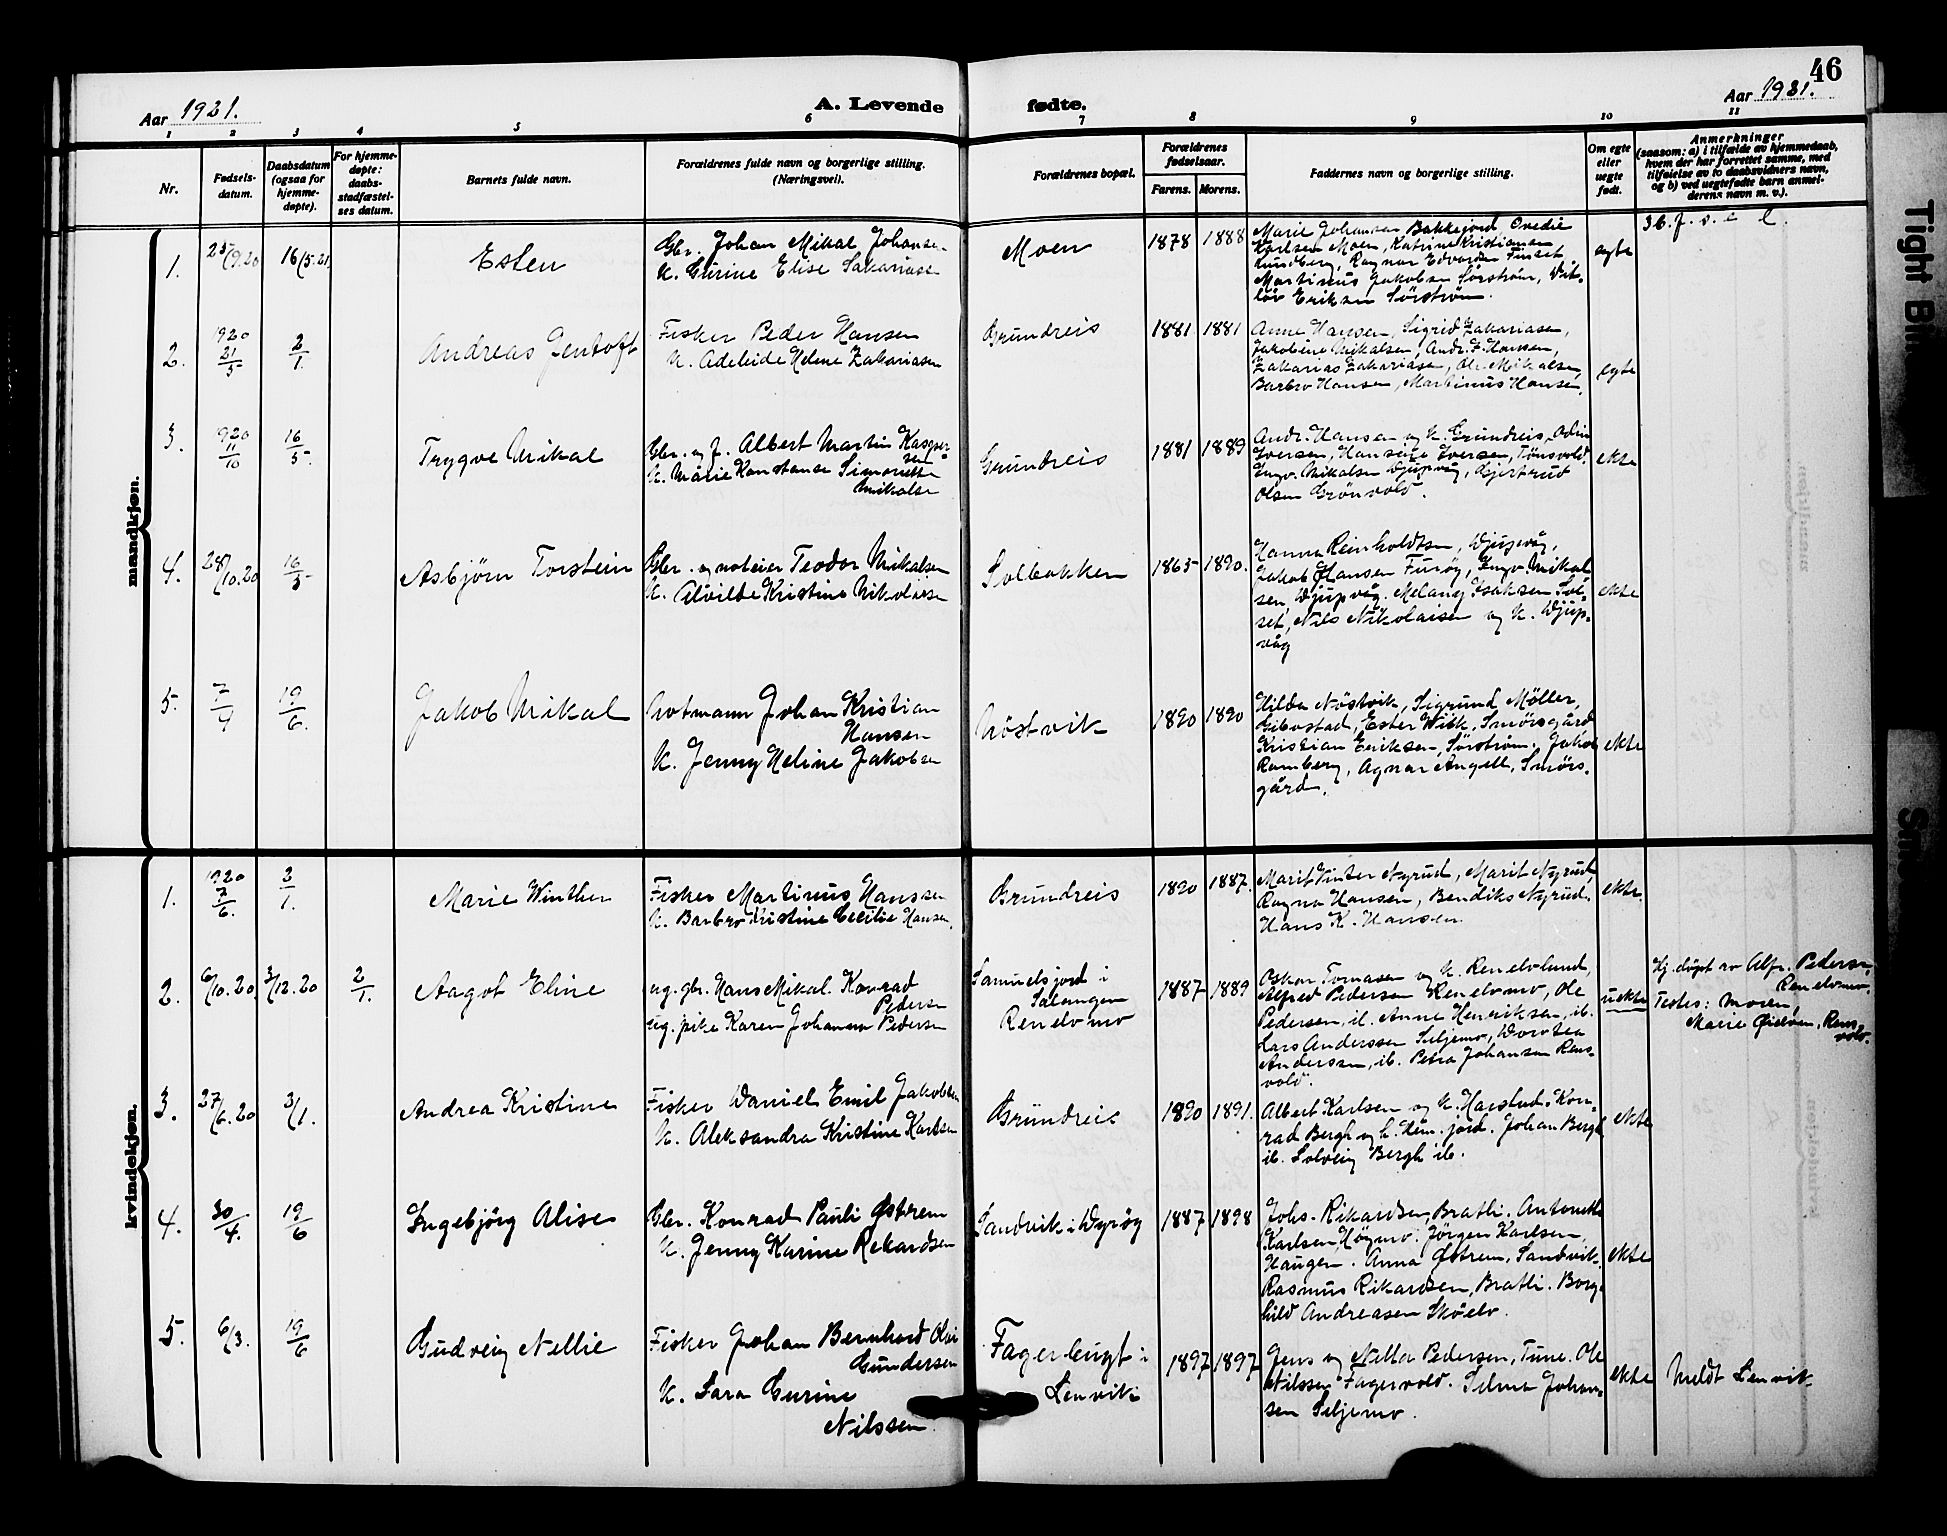 46
Aar 1921.
A. Levende
fødte.
Aar 1921.
1 2 3 4 5 6 7 8 9 10 11
Nr.
Fødsels-
datum.
Daabsdatum
(ogsaa for
hjemme-
døpte).
For hjemme-
døpte:
daabs-
stadfæstel-
ses datum.
Barnets fulde navn.
Forældrenes fulde navn og borgerlige stilling.
(Næringsvei).
Forældrenes bopæl.
Forældrenes
fødselsaar.
Farens. Morens.
Faddernes navn og borgerlige stilling.
Om egte
eller
uegte
født.
Anmerkninger
(saasom: a) i tilfælde av hjemmedaab,
hvem der har forrettet samme, med
tilføielse av to daabsvidners navn,
og b) ved uegtefødte barn anmel-
derens navn m. v.).
mandkjøn.
1.
25/9.20
16/5.21
Esten
Gbr. Johan Mikal Johansen
K. Gurine Elise Sakariasen
Moen
1878 1888
Marie Johansen Bakkejord, Ovedie
Karlsen Moen, Katrine Kristiansen
Lundberg, Ragnar Edvardsen Finset,
Martinus Jakobsen Sørstrøm, Det-
lov Eriksen Sørstrøm.
egte
2.
1920
21/5
2/1.
Andreas Gentoft
Fisker Peder Hansen
K. Adeleide Helene Zakariasen
Grundreis
1881 1881
Anne Hansen, Sigrid Zakariasen,
Jakobine Mikalsen, Andr. F. Hansen,
Zakarias Zakariasen, Ole Mikalsen,
Barbro Hansen, Martinus Hansen.
egte
3.
1920
11/10
16/5.
Trygve Mikal
Gbr. og f. Albert Martin Kasper
sen
K. Marie Konstanse Simonette
Mikalse
Grundreis
1881 1889
Andr. Hansen og K. Grundreis, Odin
Iversen, Hansine Iversen, Tønsvold,
Ingv. Mikalsen Djupvåg, Gjertrud
Olsen Grønvold.
ekte
4.
28/10.20
16/5
Asbjørn Torstein
Gbr. og noteier Teodor Mikalsen
K. Alvilde Kristine Nikolaisen
Solbakken
1865 1890.
Hanna Reinholdtsen, Djupvåg,
Jakob Hansen Furøy, Ingv. Mikal
sen, Djupvåg. Melany Isaksen Sol-
set, Nils Nikolaisen og K. Djup-
våg
ekte
5.
7/4
19/6.
Jakob Mikal
Notmann Johan Kristian
Hansen
K. Jenny Heline Jakobsen
Nøstvik
1890 1890
Hilda Nøstvik, Sigrund Möller,
Gibostad, Ester Wikk, Smörsgård
Kristian Eriksen, Sørstrøm, Jakob
Ramberg, Agnar Angell, Smörs-
gård.
ekte
kvindekjøn.
1.
1920
2/6.
2/1.
Marie Winther
Fisker Martinus Hanssen
K. Barbro Kristine Cecilie Hansen.
Grundreis
1890 1887.
Marit Vinter Nyrud, Marit Nyrud
Ragna Hansen, Bendiks Nyrud.
Hans K. Hansen.
ekte.
2.
6/10.20.
3/12.20
2/1.
Aagot Eline
ug. gbr. Hans Mikal Konrad
Pedersen
ug. pike Karen Johanna Pedersen
Samuelsjord i
Salangen
Renelvmo
1887 1889
Oskar Tomasen og K. Renelvlund,
Alfred Pedersen Renelvmo, Ole
Pedersen, ib. Anne Henriksen, ib.
Lars Anderssen Siljemo, Dorotea
Anderssen, ib. Petra Johansen Rens-
vold.
uekte
Hj. døpt av Alfr. Pedersen,
Renelvmo.
Testes: Moren,
3.
27/6.20
3/1.
Andrea Kristine
Fisker Daniel Emil Jakobsen
K. Aleksandra Kristine Karlsen
Grundreis
1890 1891.
Albert Karlsen og K. Harstad. Kon-
rad Bergh og h. Johan Bergh
ib. Solveig Bergh ib.
ekte
4.
30/4.
19/6
Ingebjørg Alise
Gbr. Konrad Pauli Østrem
K. Jenny Karine Rekardsen
Sandvik i Dyrøy
1887 1898
Johs. Rikardsen, Bratli. Antonette
Karlsen, Høgmo. Jørgen Karlsen,
Haugen. Anna Østrem, Sandvik.
Rasmus Rikardsen, Bratli. Borg-
hild Andreasen Skøelv.
ekte
5.
6/3.
19/6
Gudveig Nellie
Fisker Johan Bernhard Olai
Gundersen
K. Sara Gurine
Nilssen.
Fagerbugt i
Lenvik
1897 1897
Jens og Nella Pedersen, Tune. Ole
Nilssen Fagervold. Selma Johan-
sen Siljemo.
ekte
Meldt Lenvik